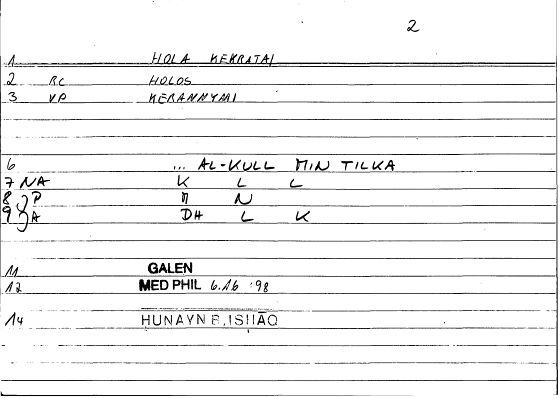 2
1 HOLA KEKRATAI
2 RC HOLOS
3 VP KERANNYMI
6 ... AL-KULL MIN TILKA
7 NA K L L
8 P M N
9 A DH L K
11 GALEN
12 MED PHIL 6.16 98
14 HUNAYN B. ISḤĀQ